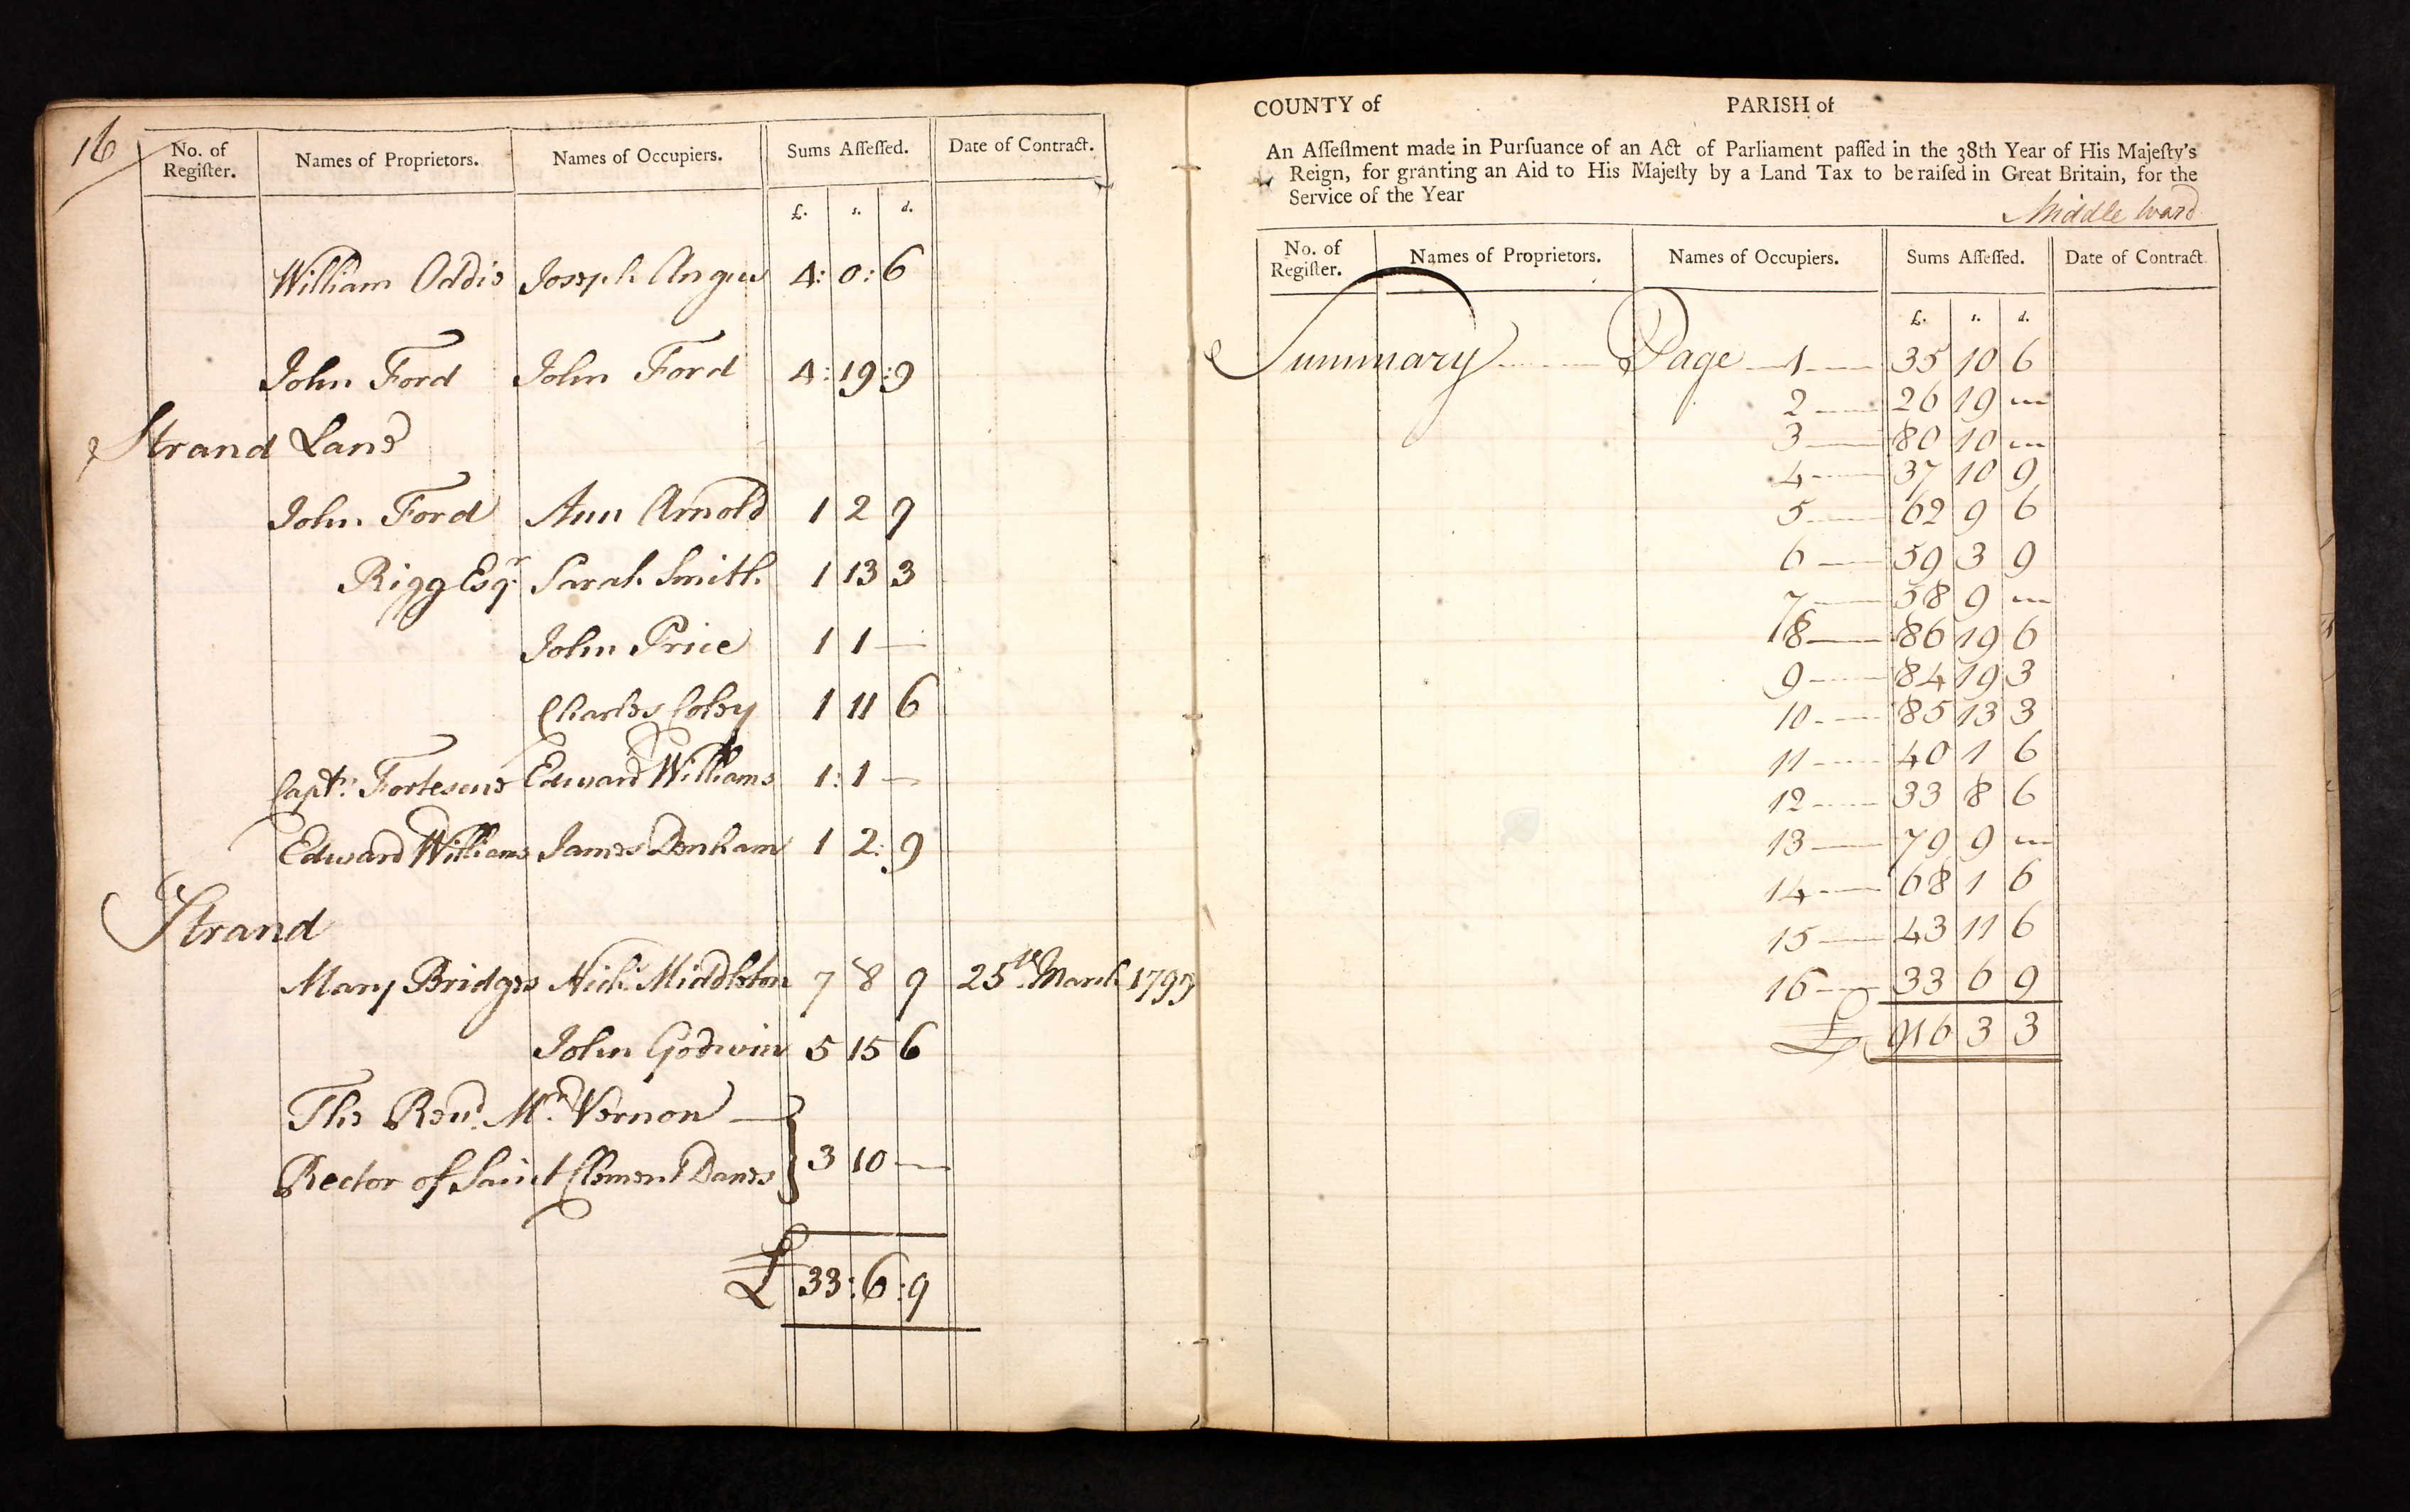 16
No. of Regiſter. Names of Proprietors. Names of Occupiers. Sums Aſſeſſed. Date of Contract.
£. s. d.
William Oddie Joseph Angus 4: 0: 6
John Ford John Ford 4: 19: 9
Strand Lane
John Ford Ann Arnold 1 2 9
Rigg Esqr. Sarah Smith 1 13 3
John Price 1 1 —
Charles Coley 1 11 6
Captn. Fortescue Edward Williams 1: 1 —
Edward Williams James Denham 1 2: 9
Strand
Mary Bridges Nichs. Middleton 7 8 9 25th March 1799
John Godwin 5 15 6
The Revd. Mr. Vernon —
Rector of Saint Clement Danes 3 10 —
£ 33: 6: 9
COUNTY of PARISH of
An Aſſeſſment made in Purſuance of an Act of Parliament paſſed in the 38th Year of His Majeſty's
Reign, for granting an Aid to His Majeſty by a Land Tax to be raiſed in Great Britain, for the
Service of the Year
Middle Ward
No. of Regiſter. Names of Proprietors. Names of Occupiers. Sums Aſſeſſed. Date of Contract
£. s. d.
Summary Page 1 35 10 6
2 26 19 —
3 80 10 —
4 37 10 9
5 62 9 6
6 59 3 9
7 58 9 —
8 86 19 6
9 84 19 3
10 85 13 3
11 40 1 6
12 33 8 6
13 79 9 —
14 68 1 6
15 43 11 6
16 33 6 9
£ 916 3 3